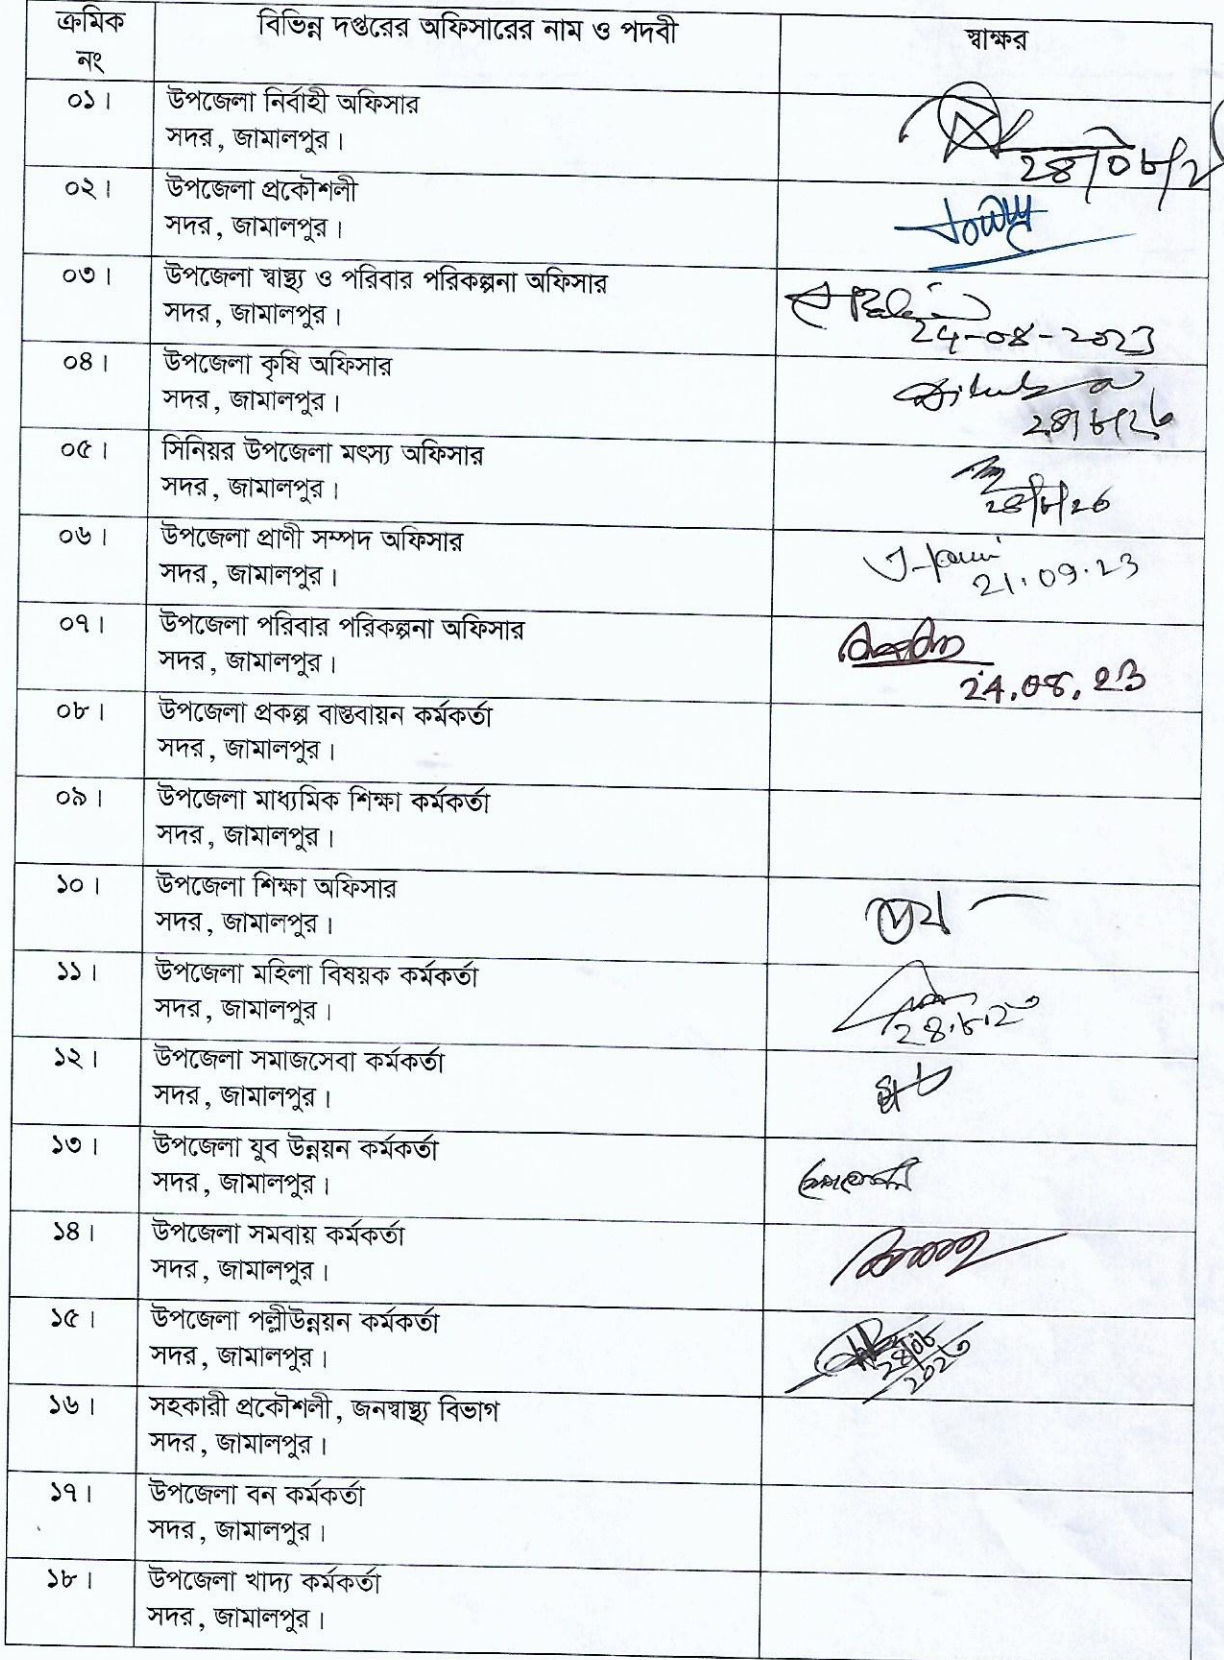 ক্রমিক নং	বিভিন্ন দপ্তরের অফিসারের নাম ও পদবী	স্বাক্ষর
০১। উপজেলা নির্বাহী অফিসার
সদর, জামালপুর।
০২। উপজেলা প্রকৌশলী
সদর, জামালপুর।
০৩। উপজেলা স্বাস্থ্য ও পরিবার পরিকল্পনা অফিসার
সদর, জামালপুর।
24-08-2023
০৪। উপজেলা কৃষি অফিসার
সদর, জামালপুর।
০৫। সিনিয়র উপজেলা মৎস্য অফিসার
সদর, জামালপুর।
০৬। উপজেলা প্রাণী সম্পদ অফিসার
সদর, জামালপুর।
21.09.23
০৭। উপজেলা পরিবার পরিকল্পনা অফিসার
সদর, জামালপুর।
24.08.23
০৮। উপজেলা প্রকল্প বাস্তবায়ন কর্মকর্তা
সদর, জামালপুর।
০৯। উপজেলা মাধ্যমিক শিক্ষা কর্মকর্তা
সদর, জামালপুর।
১০। উপজেলা শিক্ষা অফিসার
সদর, জামালপুর।
১১। উপজেলা মহিলা বিষয়ক কর্মকর্তা
সদর, জামালপুর।
১২। উপজেলা সমাজসেবা কর্মকর্তা
সদর, জামালপুর।
১৩। উপজেলা যুব উন্নয়ন কর্মকর্তা
সদর, জামালপুর।
১৪। উপজেলা সমবায় কর্মকর্তা
সদর, জামালপুর।
১৫। উপজেলা পল্লীউন্নয়ন কর্মকর্তা
সদর, জামালপুর।
১৬। সহকারী প্রকৌশলী, জনস্বাস্থ্য বিভাগ
সদর, জামালপুর।
১৭। উপজেলা বন কর্মকর্তা
সদর, জামালপুর।
১৮। উপজেলা খাদ্য কর্মকর্তা
সদর, জামালপুর।